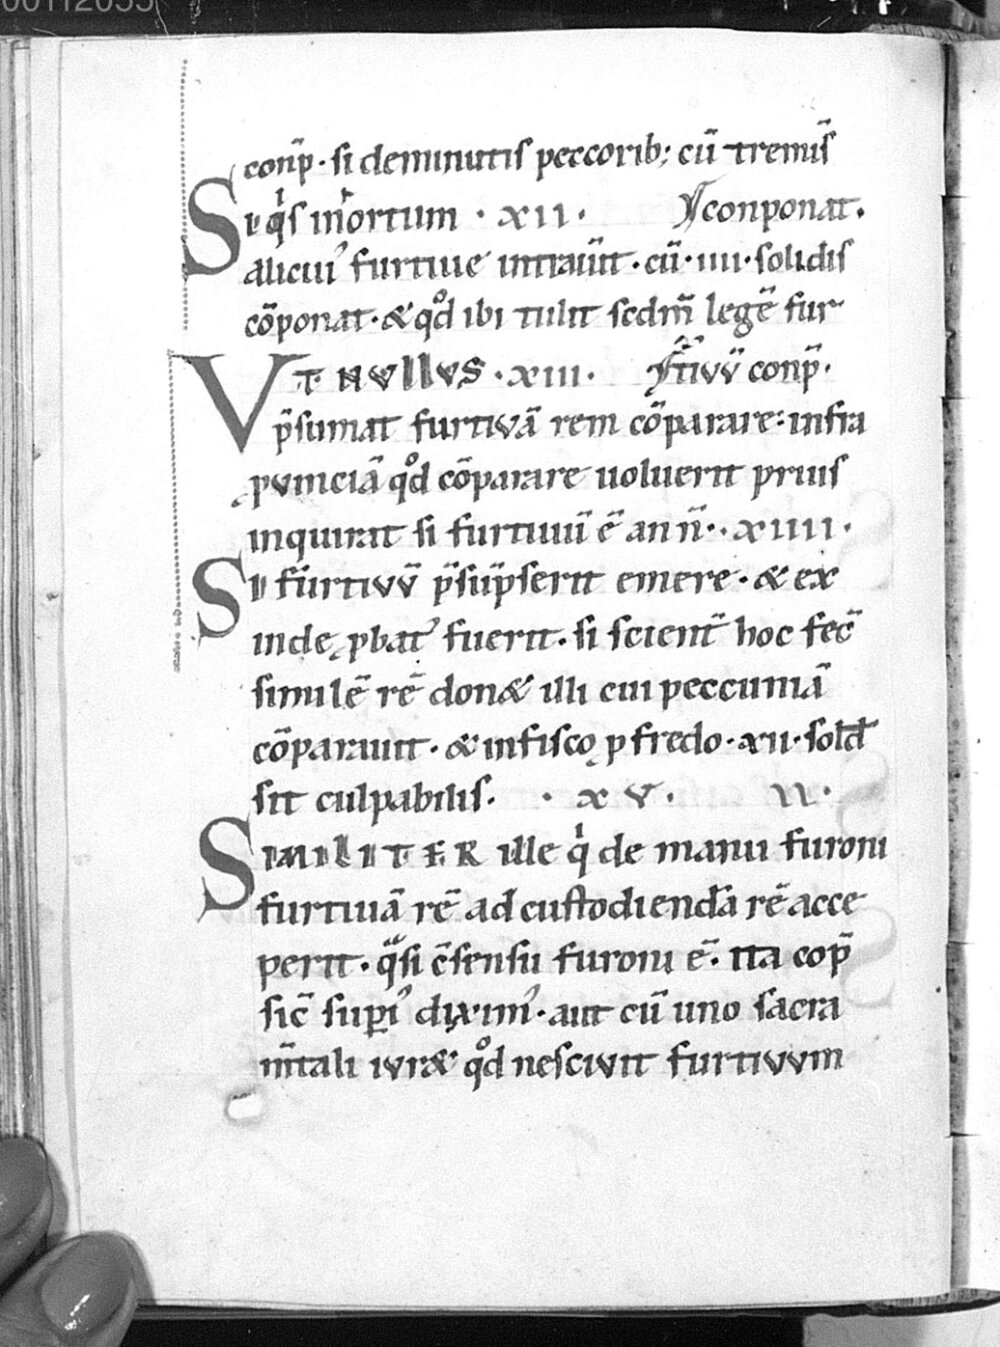 00112055
conp̄ · si deminutis peccorib; cū tremis̄
Si qͥs in ortum · xii · conponat.
alicuiꝰ furtiue intrauīt · cū · iiii · solidis
cōponat · & qd̊ ibi tulit scdm̄ legē fur
Vt nullus · xiii · tivū conp̄ ·
p̄sumat furtivā rem cōparare: infra
ꝓvinciā qd̊ cōparare uoluerit prius
inquirat si furtiuū ē an n̄ · · xiiii ·
Si furtivū p̄sūpserit emere · & ex
inde ꝓbatꝰ fuerit · si scient̄ hoc fec̄
similē rē don& illi cui peccuniā
cōparauit · & infisco ꝓ fredo · xii · sold
sit culpabilis · · xv · n ·
Similiter ille qͥ de manu furoni
furtiuā rē ad custodiendā rē acce
perit · qᵃsi c̄sensu furoni ē · ita cop̄
sic̄ supiꝰ diximꝰ · aut cū uno sacra
m̄tali iur& qd̊ nescivit furtivum